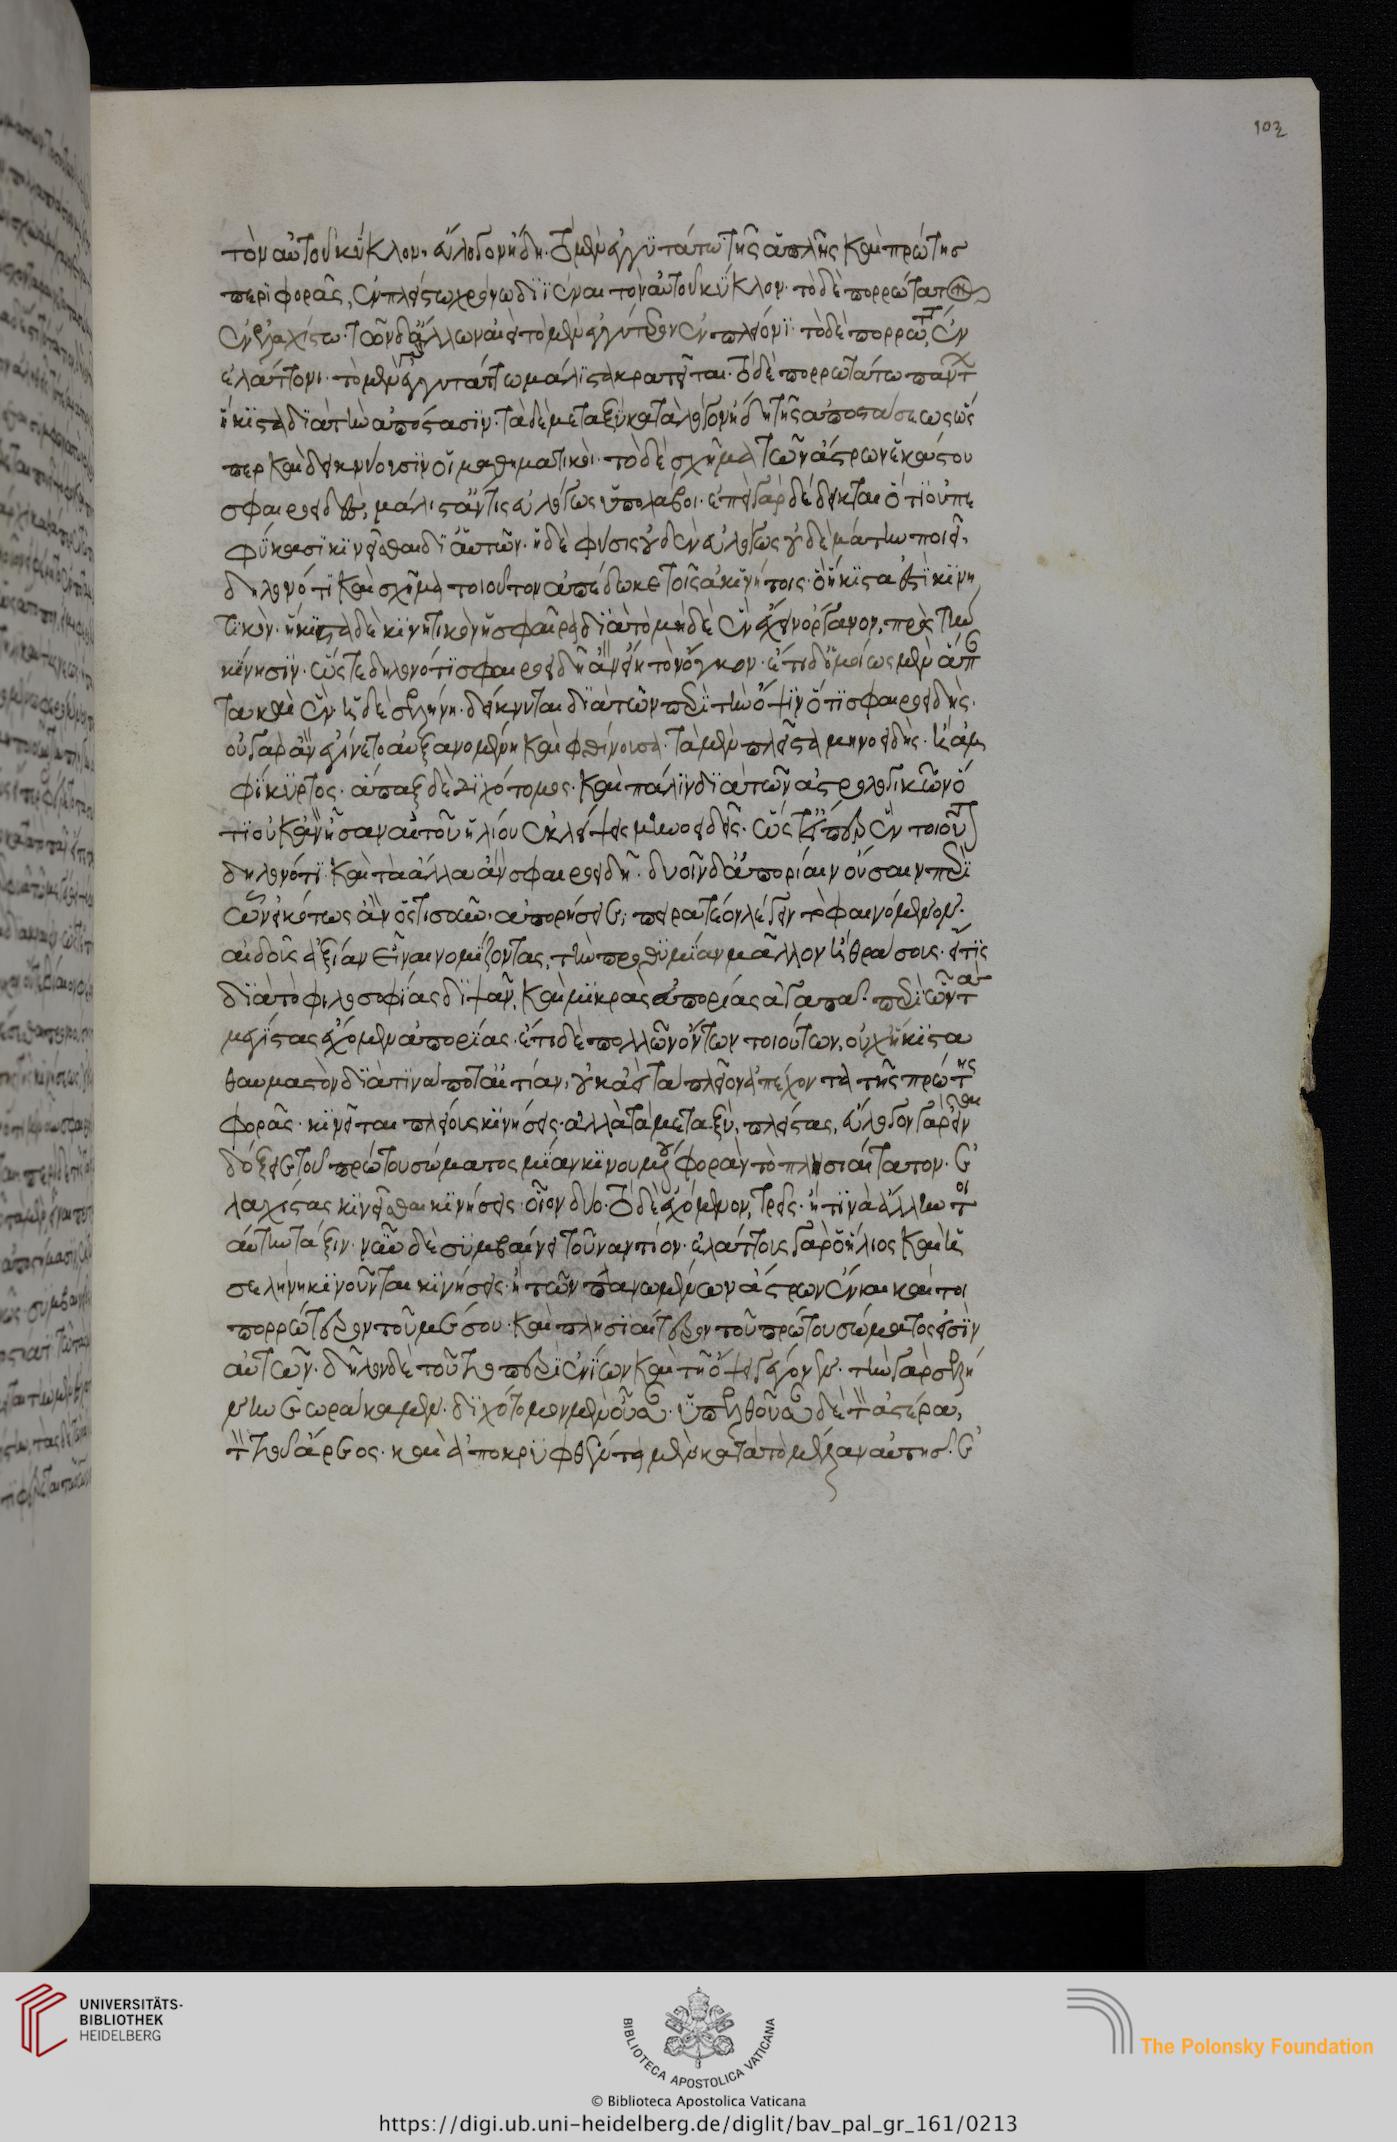 τὸν αὐτοῦ κύκλον, εὔλογον ἤδη. τὸ μὲν ἐγγυτάτω τῆς ἁπλῆς καὶ πρώτης
περιφορᾶς, ἐν πλείστω χρόνω διϊέναι τὸν αὐτοῦ κύκλον. τὸ δὲ πορρωτάτω
ἐν ἐλαχίστω. τῶν δ' ἄλλων ἀεὶ τὸ μὲν ἐγγύτερον ἐν πλείονι. τὸ δὲ πορρώτ, ἐν
ἐλάττονι. τὸ μὲν γὰρ ἐγγυτάτω μάλιστα κρατεῖται. τὸ δὲ πορρωτάτω πάντ
ἥκιστα διὰ τὴν ἀπόστασιν. τὰ δὲ μεταξὺ κατὰ λόγον ἤδη τῆς ἀποστάσεως ὥσ
περ καὶ δεικνύουσιν οἱ μαθηματικοί. τὸ δὲ σχῆμα τῶν ἄστρων ἑκάστου
σφαιροειδὲς, μάλιστ' ἄν τις εὐλόγως ὑπολάβοι. ἐπεὶ γὰρ δέδεικται ὅτι οὐ πε
φύκασι κινεῖσθαι δι' αὑτῶν. ἡ δὲ φύσις οὐδὲν ἀλόγως οὐδὲ μάτην ποιεῖ,
δηλονότι καὶ σχῆμα τοιοῦτον ἀπέδωκε τοῖς ἀκινήτοις. ὃ ἥκιστα ἐστὶ κινη
τικόν. ἥκιστα δὲ κινητικὸν ἡ σφαῖρα διὰ τὸ μηδὲν ἔχειν ὄργανον, πρὸς τὴν
κίνησιν. ὥστε δηλονότι σφαιροειδῆ ἂν εἴη τὸν ὄγκον. ἔτι δ' ὁμοίως μὲν ἅπαν
τα καὶ ἕν. ἡ δὲ σελήνη. δείκνυται διὰ τῶν περὶ τὴν ὄψιν ὅτι σφαιροειδής.
οὐ γὰρ ἂν ἐγίνετο αὐξανομένη καὶ φθίνουσα. τὰ μὲν πλεῖστα μηνοειδὴς. ἢ ἀμ
φίκυρτος. ἅπαξ δὲ διχότομος. καὶ πάλιν διὰ τῶν ἀστρολογικῶν ὅ
τι οὐκ ἂν ἦσαν αἱ τοῦ ἡλίου ἐκλείψεις μηνοειδεῖς. ὥστ' εἴπερ ἓν τοιοῦτ
δηλονότι καὶ τὰ ἄλλα ἂν σφαιροειδῆ. δυοῖν δ' ἀπορίαιν οὔσαιν περὶ
ὧν εἰκότως ἂν ὅστισοῦν ἀπορήσειε, πειρατέον λέγειν τὸ φαινόμενον.
αἰδοῦς ἀξίαν εἶναι νομίζοντας, τὴν προθυμίαν μᾶλλον ἢ θράσους. εἴ τις
διὰ τὸ φιλοσοφίας διψᾶν, καὶ μικρὰς ἀπορίας ἀγαπᾶ. περὶ ὧν τὰς
μεγίστας ἔχομεν ἀπορίας. ἔτι δὲ πολλῶν ὄντων τοιούτων, οὐχ ἥκιστα
θαυμαστὸν διὰ τίνα ποτ' αἰτίαν, οὐκ ἀεὶ τὰ πλεῖον ἀπέχοντα τῆς πρώτης
φορᾶς. κινεῖται πλείους κινήσεις. ἀλλὰ τὰ μεταξὺ, πλείστας, εὔλογον γὰρ ἂν
δόξειε τοῦ πρώτου σώματος μίαν κινουμένου φορὰν τὸ πλησιαίτατον. ἐ
λαχίστας κινεῖσθαι κινήσεις. οἷον δύο. τὸ δὲ ἐχόμενον, τρεῖς. ἤ τινα ἄλλην τοι
αύτην τάξιν. νῦν δὲ συμβαίνει τοὐναντίον. ἐλάττους γὰρ ὁ ἥλιος καὶ ἡ
σελήνη κινοῦνται κινήσεις. ἢ τῶν πλανωμένων ἄστρων ἔνια καίτοι
πορρώτερον τοῦ μέσου. καὶ πλησιαίτερον τοῦ πρώτου σώματος εἰσὶν
αὐτῶν. δῆλον δὲ τοῦτο περὶ ἐνίων καὶ τῇ ὄψει γέγονεν. τὴν γὰρ σελή
νην ἑωράκαμεν. διχότομον μὲν οὖσαν. ὑπελθοῦσαν δὲ τὸν ἀστέρα,
τὸν τοῦ ἄρεος. καὶ ἀποκρυφθέντα μὲν κατὰ τὸ μέλαν αὐτῆς. ἐ
102
UNIVERSITÄTS-
BIBLIOTHEK
HEIDELBERG
BIBLIOTECA APOSTOLICA VATICANA
The Polonsky Foundation
© Biblioteca Apostolica Vaticana
https://digi.ub.uni-heidelberg.de/diglit/bav_pal_gr_161/0213